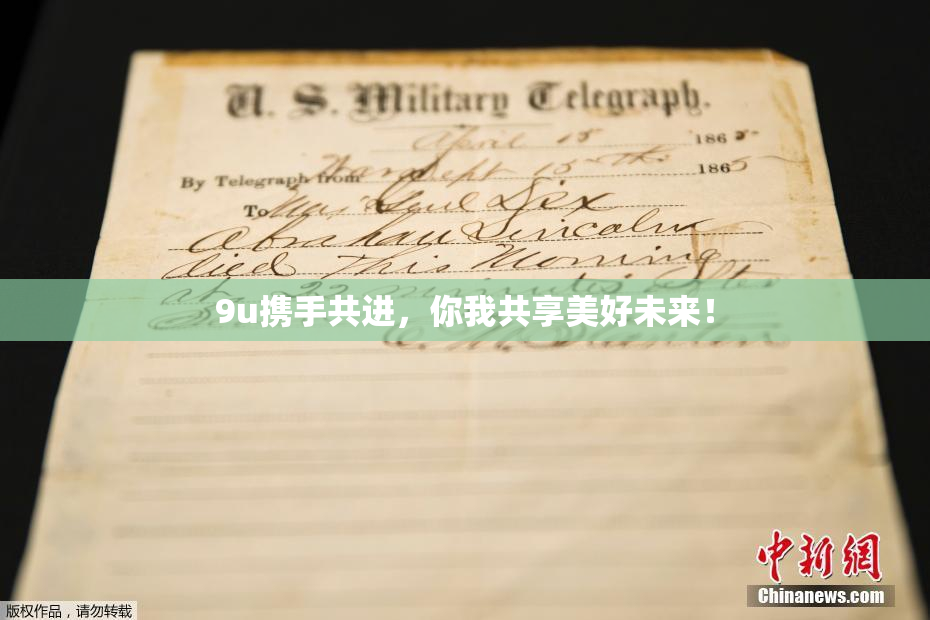 U. S. Military Telegraph.
April 15 1865
By Telegraph from War Dept 15th 1865
To Maj Genl Dix
Abraham Lincoln
died This Morning
at 22 minutes after
9u携手共进，你我共享美好未来！
E. M. Stanton
中新网
Chinanews.com
版权作品，请勿转载